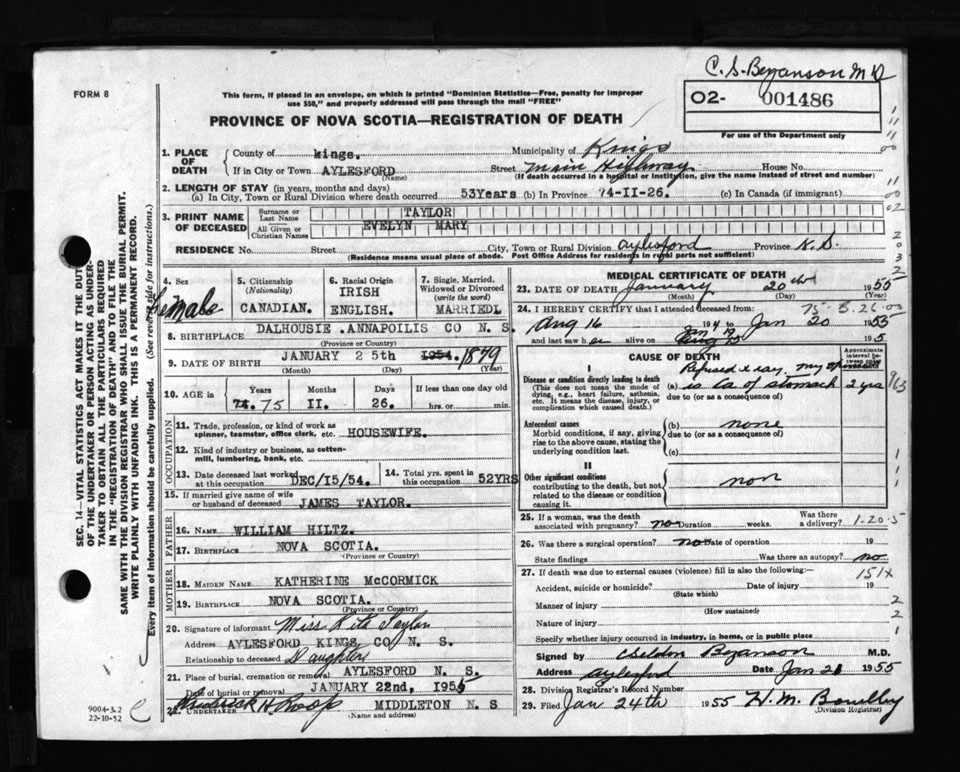 C. S. Bezanson M D
FORM 8
This form, if placed in an envelope, on which is printed "Dominion Statistics—Free, penalty for improper
use $50," and properly addressed will pass through the mail "FREE"
O2- 001486
For use of the Department only
PROVINCE OF NOVA SCOTIA—REGISTRATION OF DEATH
1. PLACE OF DEATH
County of kings. Municipality of Kings
If in City or Town AYLESFORD Street Main Highway House No.
(Name) (If death occurred in a hospital or institution, give the name instead of street and number)
2. LENGTH OF STAY (in years, months and days)
(a) In City, Town or Rural Division where death occurred 53Years (b) In Province 74-II-26. (c) In Canada (if immigrant)
3. PRINT NAME OF DECEASED
Surname or Last Name TAYLOR
All Given or Christian Names EVELYN MARY
RESIDENCE No. Street City, Town or Rural Division Aylesford Province N.S.
(Residence means usual place of abode. Post Office Address for residents in rural parts not sufficient)
4. Sex Female
5. Citizenship (Nationality) CANADIAN.
6. Racial Origin IRISH ENGLISH.
7. Single, Married, Widowed or Divorced (write the word) MARRIEDL
8. BIRTHPLACE DALHOUSIE ANNAPOILIS CO N.S.
(Province or Country)
9. DATE OF BIRTH JANUARY 2 5th 1954. 1879
(Month) (Day) (Year)
10. AGE in Years 75 Months II. Days 26. If less than one day old hrs. or min.
OCCUPATION
11. Trade, profession, or kind of work as spinner, teamster, office clerk, etc. HOUSEWIFE.
12. Kind of industry or business, as cotton-mill, lumbering, bank, etc.
13. Date deceased last worked at this occupation DEC/I5/54.
14. Total yrs. spent in this occupation 52YRS
15. If married give name of wife or husband of deceased JAMES TAYLOR.
FATHER
16. NAME WILLIAM HILTZ.
17. BIRTHPLACE NOVA SCOTIA.
(Province or Country)
MOTHER
18. MAIDEN NAME KATHERINE McCORMICK
19. BIRTHPLACE NOVA SCOTIA.
(Province or Country)
20. Signature of informant Miss Rita Taylor
Address AYLESFORD KINGS CO N. S.
Relationship to deceased Daughter
21. Place of burial, cremation or removal AYLESFORD N. S.
Date of burial or removal JANUARY 22nd, 1955
22. UNDERTAKER Frederick H Roop MIDDLETON N S
(Name and address)
MEDICAL CERTIFICATE OF DEATH
23. DATE OF DEATH January 20th 1955
(Month) (Day) (Year)
75-3.26-00
24. I HEREBY CERTIFY that I attended deceased from:
Aug 16 194 to Jan 20 1955
and last saw her alive on Jan 19 195
CAUSE OF DEATH
Approximate interval between
I
Disease or condition directly leading to death
(This does not mean the mode of dying, e.g., heart failure, asthenia, etc. It means the disease, injury, or complication which caused death.)
Refused x ray, my opinion
(a) is Ca of stomach 2 yrs
due to (or as a consequence of)
Antecedent causes
Morbid conditions, if any, giving rise to the above cause, stating the underlying condition last.
(b) none
due to (or as a consequence of)
(c)
II
Other significant conditions
contributing to the death, but not related to the disease or condition causing it.
non
25. If a woman, was the death associated with pregnancy? no Duration weeks. Was there a delivery? 1-20-5
26. Was there a surgical operation? no Date of operation 19
State findings Was there an autopsy? no
27. If death was due to external causes (violence) fill in also the following:— 151x
Accident, suicide or homicide? Date of injury 19
(State which)
Manner of injury
(How sustained)
Nature of injury
Specify whether injury occurred in industry, in home, or in public place
Signed by C Seldon Bezanson M.D.
Address Aylesford Date Jan 21 1955
28. Division Registrar's Record Number
29. Filed Jan 24th 1955 H. M.
(Division Registrar)
9004-3.2
22-10-52
SEC. 14—VITAL STATISTICS ACT MAKES IT THE DUTY
OF THE UNDERTAKER OR PERSON ACTING AS UNDER-
TAKER TO OBTAIN ALL THE PARTICULARS REQUIRED
IN THE "REGISTRATION OF DEATH" AND TO FILE THE
SAME WITH THE DIVISION REGISTRAR WHO SHALL ISSUE THE BURIAL PERMIT.
WRITE PLAINLY WITH UNFADING INK. THIS IS A PERMANENT RECORD.
Every item of information should be carefully supplied. (See reverse side for instructions.)